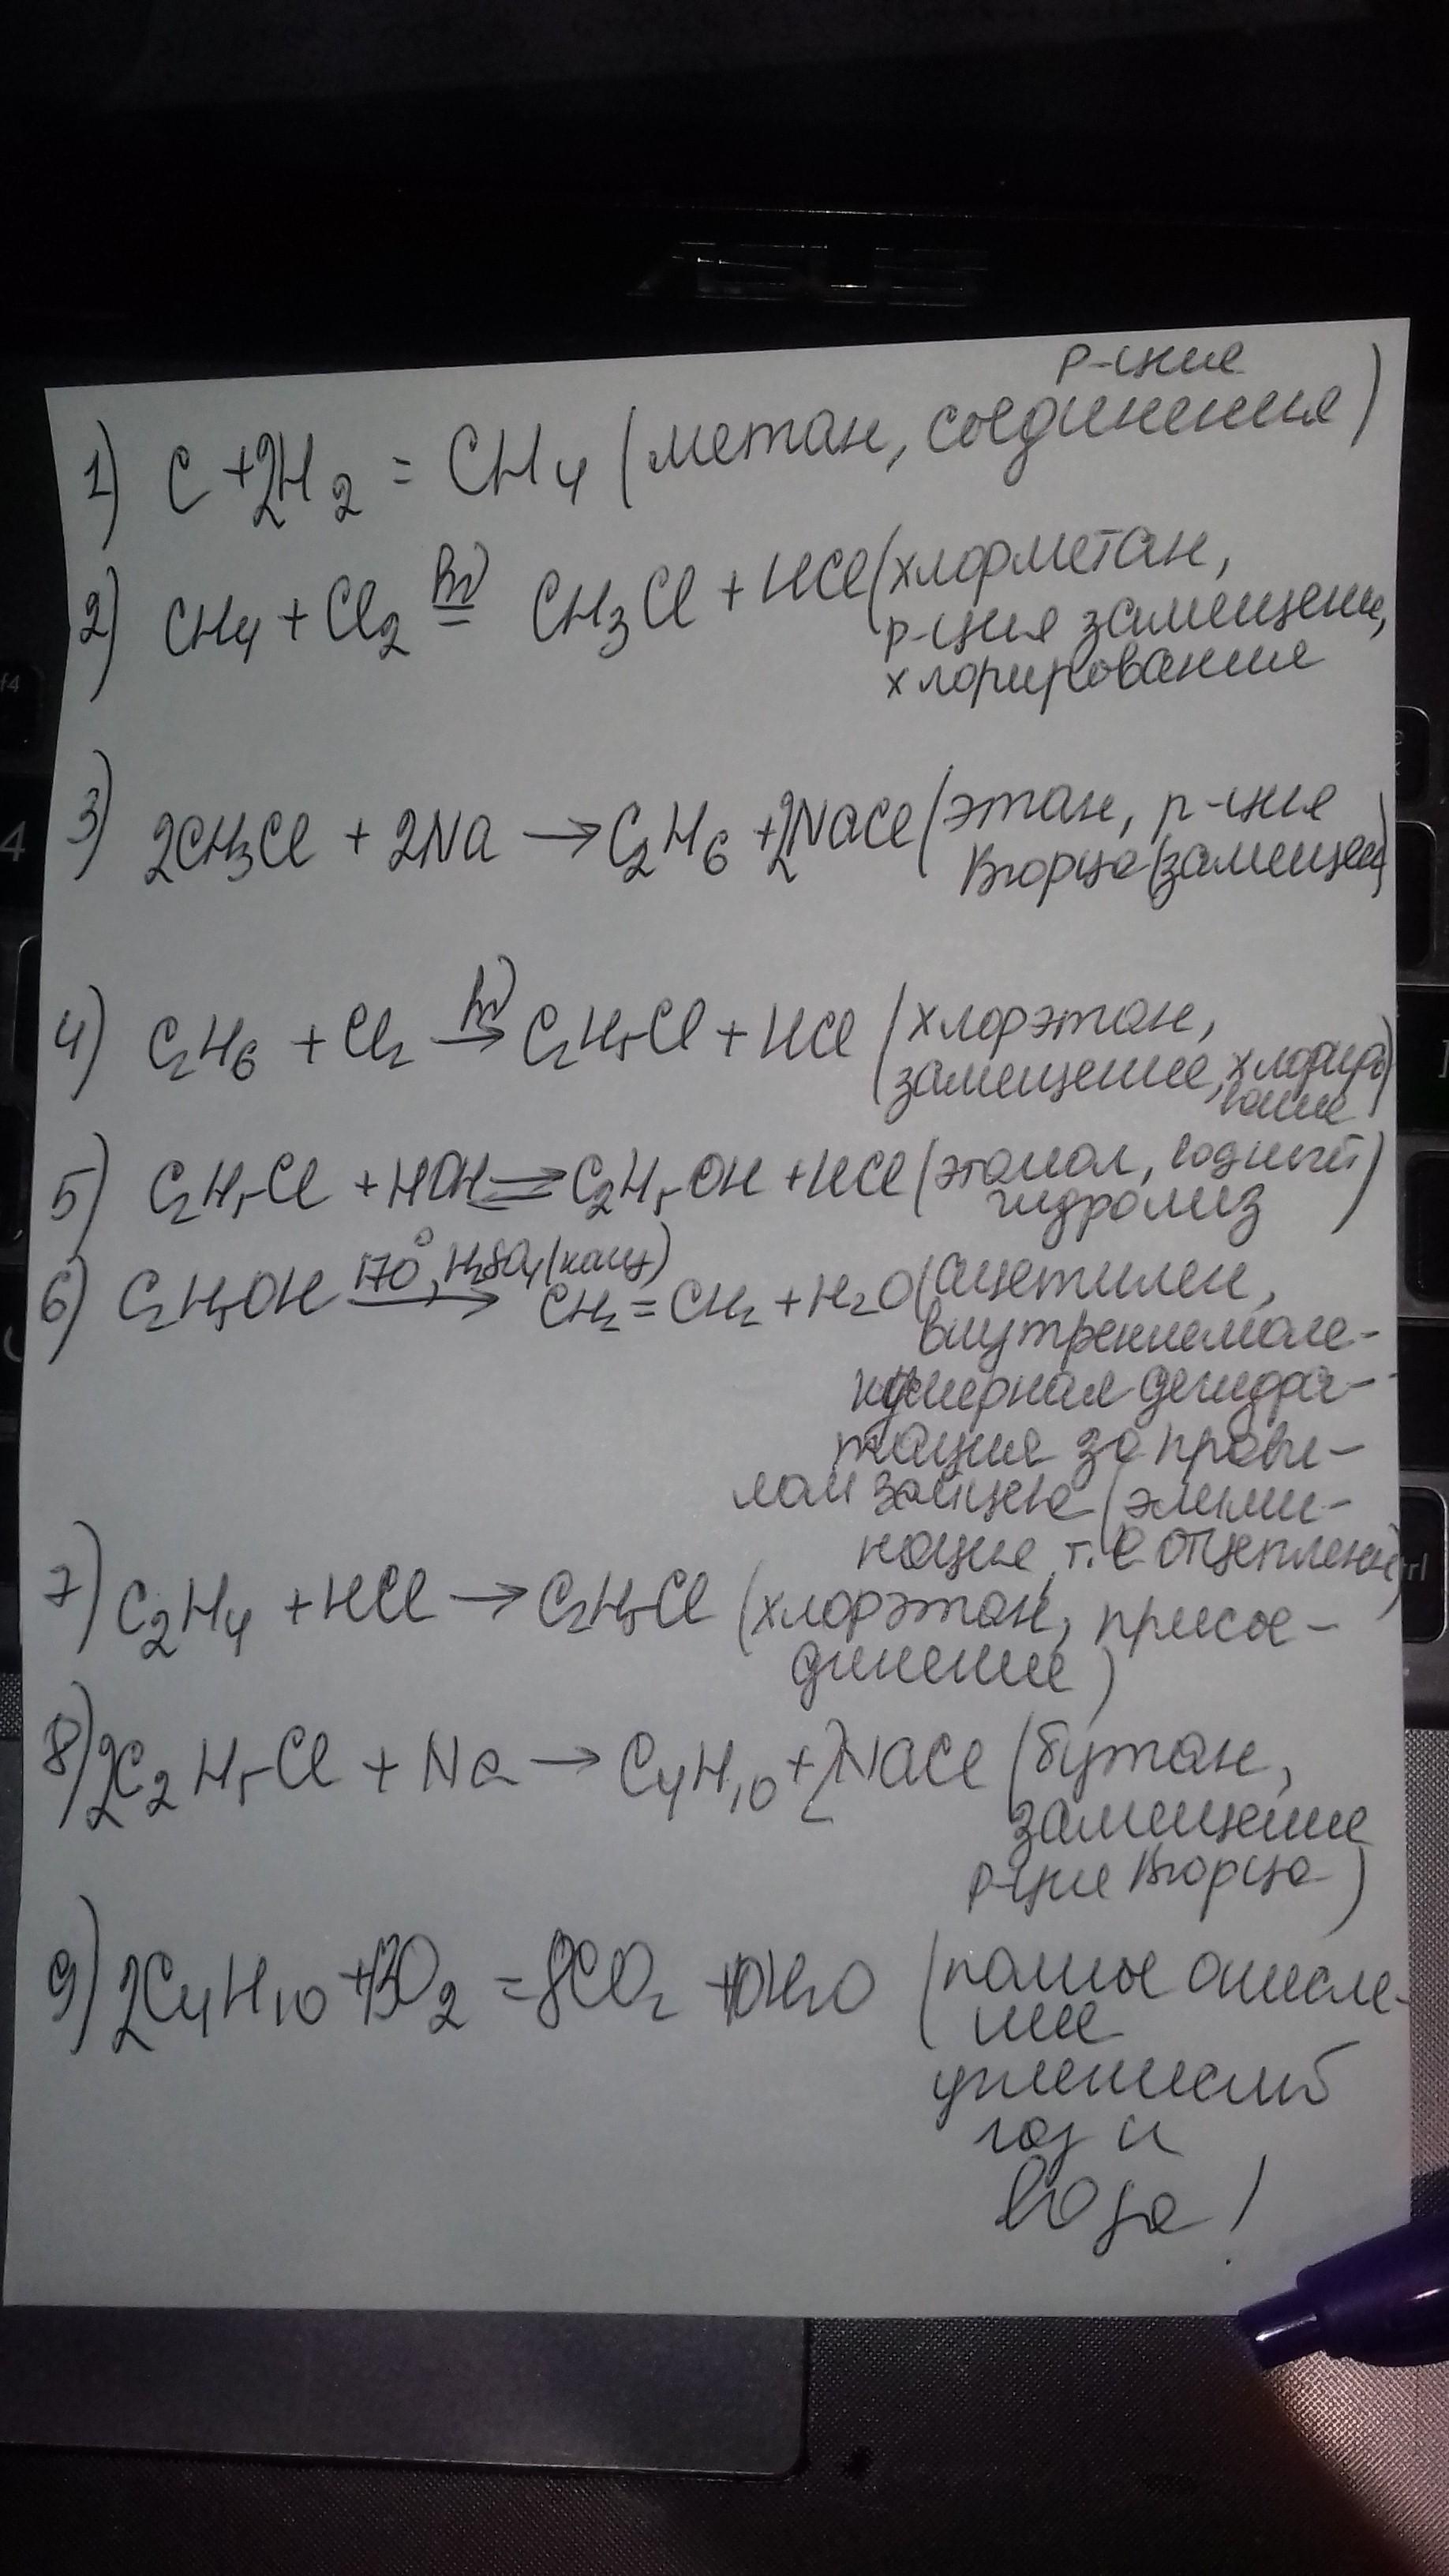 ASUS
р-ция
1) C + 2H2 = CH4 (метан, соединения)
2) CH4 + Cl2 hν = CH3Cl + HCl (хлорметан,
р-ция замещени,
хлорирование
3) 2CH3Cl + 2Na → C2H6 + 2NaCl (этан, р-ция
Вюрца (замещен)
4) C2H6 + Cl2 hν → C2H5Cl + HCl (хлорэтан,
замещение, хлориро
вание)
5) C2H5Cl + HOH ⇌ C2H5OH + HCl (этанол, водный
гидролиз)
6) C2H5OH 170°, H2SO4(конц) → CH2=CH2 + H2O (ацетилен,
внутреннемоле-
кулярная дегидра-
тация за прави-
лом зайцева (элими-
нация, т.е отщепление)
7) C2H4 + HCl → C2H5Cl (хлорэтан, присое-
динение)
8) 2C2H5Cl + Na → C4H10 + 2NaCl (бутан,
замещение
р-ция Вюрца)
9) 2C4H10 + 13O2 = 8CO2 + 10H2O (полное окисле-
ние
углекислый
газ и
вода)
f4
4